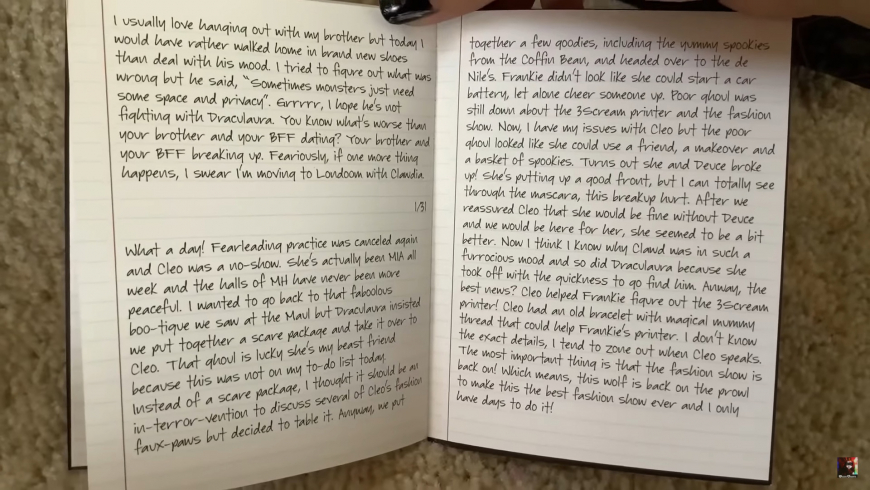 I usually love hanging out with my brother but today I
would have rather walked home in brand new shoes
than deal with his mood. I tried to figure out what was
wrong but he said, "Sometimes monsters just need
some space and privacy". Grrrrr, I hope he's not
fighting with Draculaura. You know what's worse than
your brother and your BFF dating? Your brother and
your BFF breaking up. Feariously, if one more thing
happens, I swear I'm moving to Londoom with Clawdia.
1/31
What a day! Fearleading practice was canceled again
and Cleo was a no-show. She's actually been MIA all
week and the halls of MH have never been more
peaceful. I wanted to go back to that faboolous
boo-tique we saw at the Maul but Draculaura insisted
we put together a scare package and take it over to
Cleo. That ghoul is lucky she's my beast friend
because this was not on my to-do list today.
Instead of a scare package, I thought it should be an
in-terror-vention to discuss several of Cleo's fashion
faux-paws but decided to table it. Anyway, we put
together a few goodies, including the yummy spookies
from the Coffin Bean, and headed over to the de
Nile's. Frankie didn't look like she could start a car
battery, let alone cheer someone up. Poor ghoul was
still down about the 3Scream printer and the fashion
show. Now, I have my issues with Cleo but the poor
ghoul looked like she could use a friend, a makeover and
a basket of spookies. Turns out she and Deuce broke
up! She's putting up a good front, but I can totally see
through the mascara, this breakup hurt. After we
reassured Cleo that she would be fine without Deuce
and we would be here for her, she seemed to be a bit
better. Now I think I know why Clawd was in such a
furrocious mood and so did Draculaura because she
took off with the quickness to go find him. Anway, the
best news? Cleo helped Frankie figure out the 3Scream
printer! Cleo had an old bracelet with magical mummy
thread that could help Frankie's printer. I don't know
the exact details, I tend to zone out when Cleo speaks.
The most important thing is that the fashion show is
back on! Which means, this wolf is back on the prowl
to make this the best fashion show ever and I only
have days to do it!